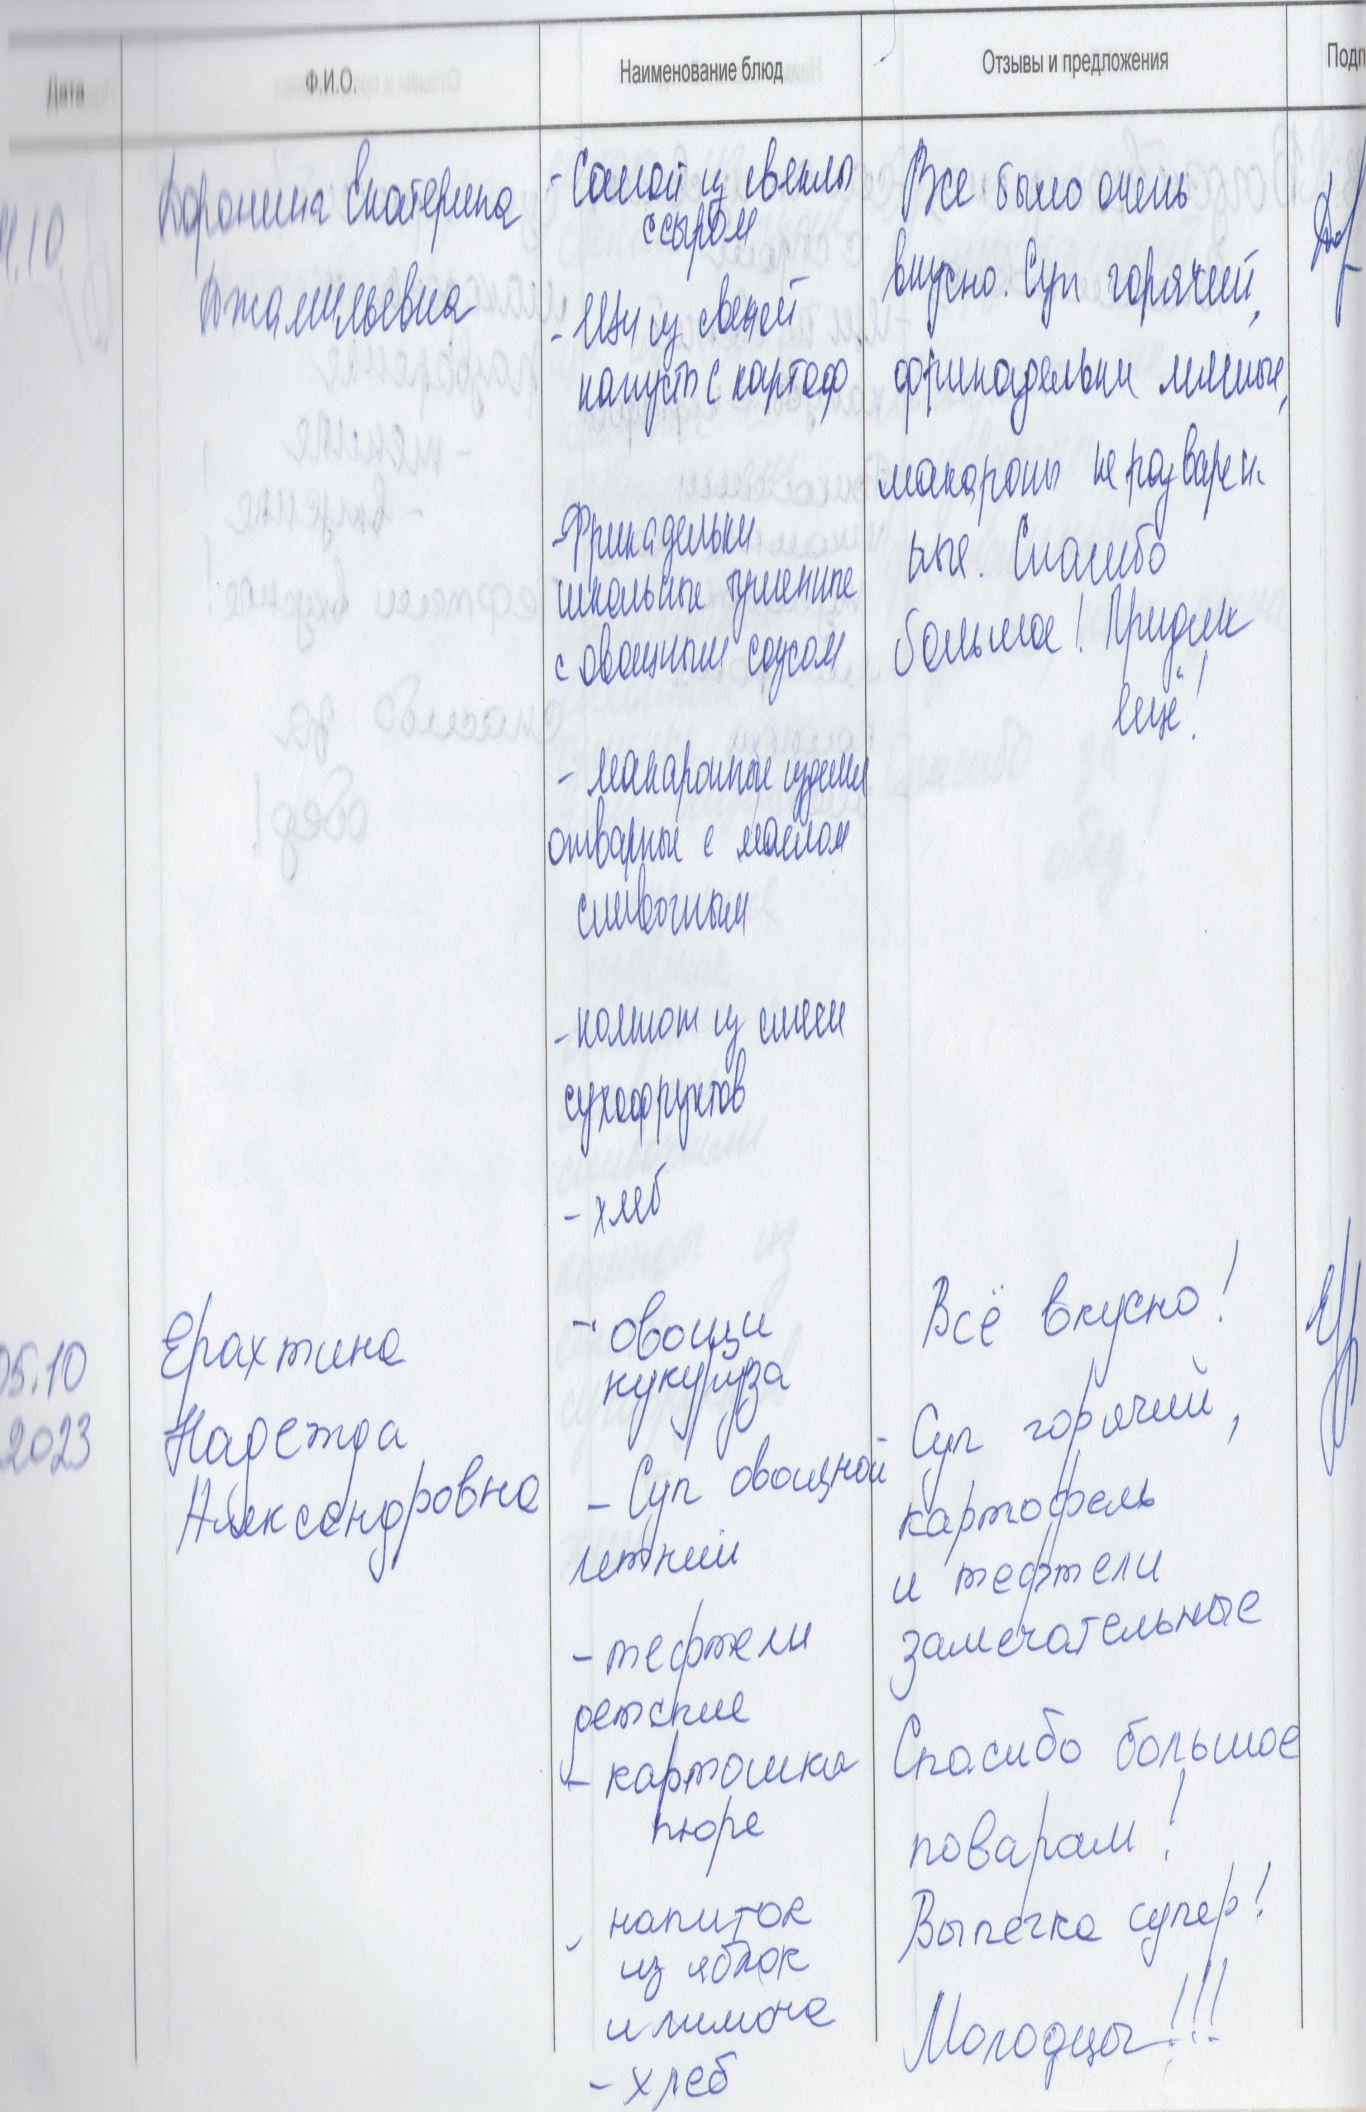 Дата
Ф.И.О.
Наименование блюд
Отзывы и предложения
Подп
.10
Доронина Екатерина
Джамильевна
- Салат из свеклы
с сыром
- Щи из свежей
капусты с картоф
- Фрикадельки
школьные тушеные
с овощным соусом
- макаронные изделия
отварные с маслом
сливочным
- компот из смеси
сухофруктов
- хлеб
Все было очень
вкусно. Суп горячий,
фрикадельки мясные,
макароны не разварен-
ные. Спасибо
большое! Придем
ещё!
05.10
2023
Ерахтина
Надежда
Александровна
- овощи
кукуруза
- Суп овощной
летний
- тефтели
детские
- картошка
пюре
- напиток
из яблок
и лимона
- хлеб
Всё вкусно!
Суп горячий,
картофель
и тефтели
замечательные
Спасибо большое
поварам!
Выпечка супер!
Молодцы!!!